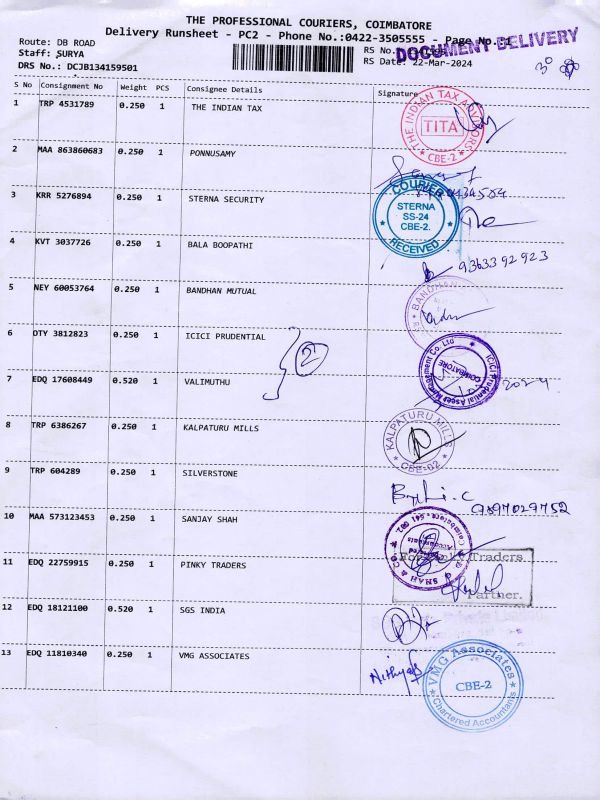 THE PROFESSIONAL COURIERS, COIMBATORE
Delivery Runsheet - PC2 - Phone No.:0422-3505555 - Page No. 1
DOCUMENT DELIVERY
Route: DB ROAD
Staff: SURYA
DRS No.: DCJB134159501
RS No.
RS Date: 22-Mar-2024
30
S No Consignment No Weight PCS Consignee Details Signature
1 TRP 4531789 0.250 1 THE INDIAN TAX
THE INDIAN TAX ADVISORS
TITA
CBE-2
2 MAA 863860683 0.250 1 PONNUSAMY
3 KRR 5276894 0.250 1 STERNA SECURITY
COURIER
STERNA
SS-24
CBE-2.
RECEIVED
4 KVT 3037726 0.250 1 BALA BOOPATHI
9363392923
5 NEY 60053764 0.250 1 BANDHAN MUTUAL
BANDHAN
6 DTY 3812823 0.250 1 ICICI PRUDENTIAL
2
ICICI Prudential Asset Management Co. Ltd
COIMBATORE
7 EDQ 17608449 0.520 1 VALIMUTHU
2024
8 TRP 6386267 0.250 1 KALPATURU MILLS
KALPATURU MILLS
CBE-02
9 TRP 604289 0.250 1 SILVERSTONE
9897029752
10 MAA 573123453 0.250 1 SANJAY SHAH
SHAH & CO
Coimbatore-641 002
11 EDQ 22759915 0.250 1 PINKY TRADERS
For Traders
Partner.
12 EDQ 18121100 0.520 1 SGS INDIA
13 EDQ 11810340 0.250 1 VMG ASSOCIATES
Nithya
VMG Associates
CBE-2
Chartered Accountants